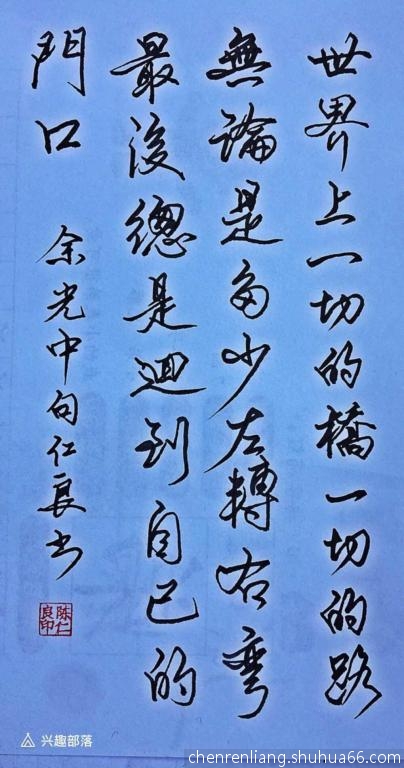 世界上一切的橋一切的路
無論是多少左轉右彎
最後總是迴到自己的
門口
余光中句仁良书
陈仁良印
兴趣部落
chenrenliang.shuhua66.com